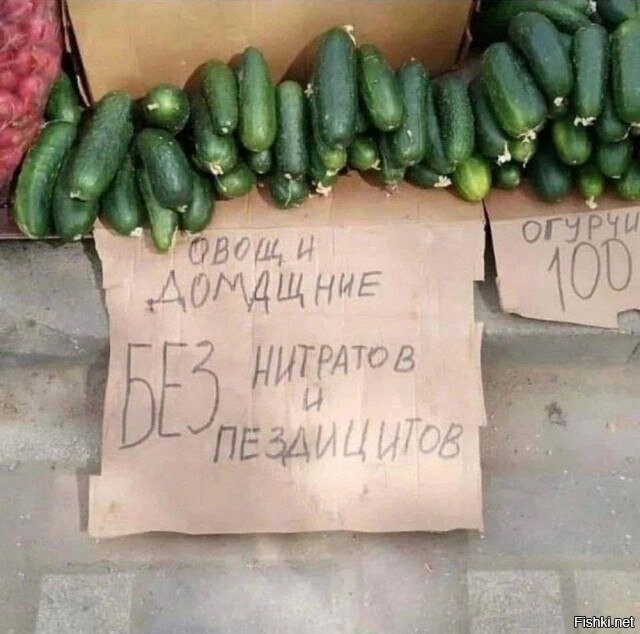 ОВОЩИ
ДОМАЩНИЕ
БЕЗ НИТРАТОВ
И
ПЕЗДИЦИТОВ
ОГУРЧИ
100
Fishki.net